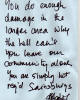 You do enough
damage in the
larger area Why
the hell can't
You leave our
community alone.
You are simply not
req'd Sainsburys